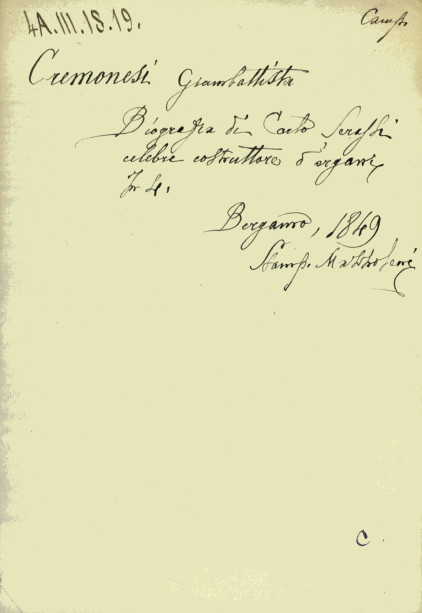 4A.III.18.19.
Camp.
Cremonesi Giambattista
Biografia di Carlo Serassi
celebre costruttore d'organi
In 4.
Bergamo, 1849
Stamp. Mazzoleni
C.